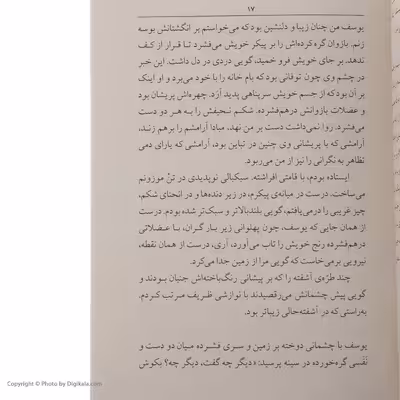 ۱۷
یوسف من چنان زیبا و دلنشین بود که می‌خواستم بر انگشتانش بوسه
زنم. بازوان گره کرده‌اش را بر پیکر خویش می‌فشرد تا قرار از کف
ندهد. بر جای خویش فرو خمید، گویی دردی در دل داشت. این خبر
در چشم وی چون توفانی بود که بام خانه را با خود می‌برد و او اینک
بر آن بود که از جسم خویش سرپناهی پدید آرد. چهره‌اش پریشان بود
و عضلات بازوانش درهم‌فشرده. شکم نحیفش را به هر دو دست
می‌فشرد. روا نمی‌داشت دست بر من نهد، مبادا آرامشم را برهم زند،
آرامشی که با پریشانی وی چنین در تباین بود، آرامشی که یارای دمی
تظاهر به نگرانی را نیز از من می‌ربود.
ایستاده بودم، با قامتی افراشته. سبکبالی نوپدیدی در تنْ موزونم
می‌ساخت. درست در میانه‌ی پیکرم، در زیر دنده‌ها و در انحنای شکم،
چیز غریبی را درمی‌یافتم، گویی بلندبالاتر و سبک‌تر شده بودم. درست
از همان جایی که یوسف، چون پهلوانی زیر بار گران، با عضلاتی
درهم‌فشرده رنج خویش را تاب می‌آورد، آری، درست از همان نقطه،
نیرویی برمی‌خاست که گویی مرا از زمین جدا می‌کرد.
چند طرّه‌ی آشفته را که بر پیشانی رنگ‌باخته‌اش جنبان بودند و
گویی پیش چشمانش می‌رقصیدند با نوازشی ظریف مرتب کردم.
به‌راستی که در آشفته‌حالی زیباتر بود.
یوسف با چشمانی دوخته بر زمین و سری فشرده میان دو دست و
نَفَسی گره‌خورده در سینه پرسید: «دیگر چه گفت، دیگر چه؟ بکوش
Copyright © Photo by Digikala.com